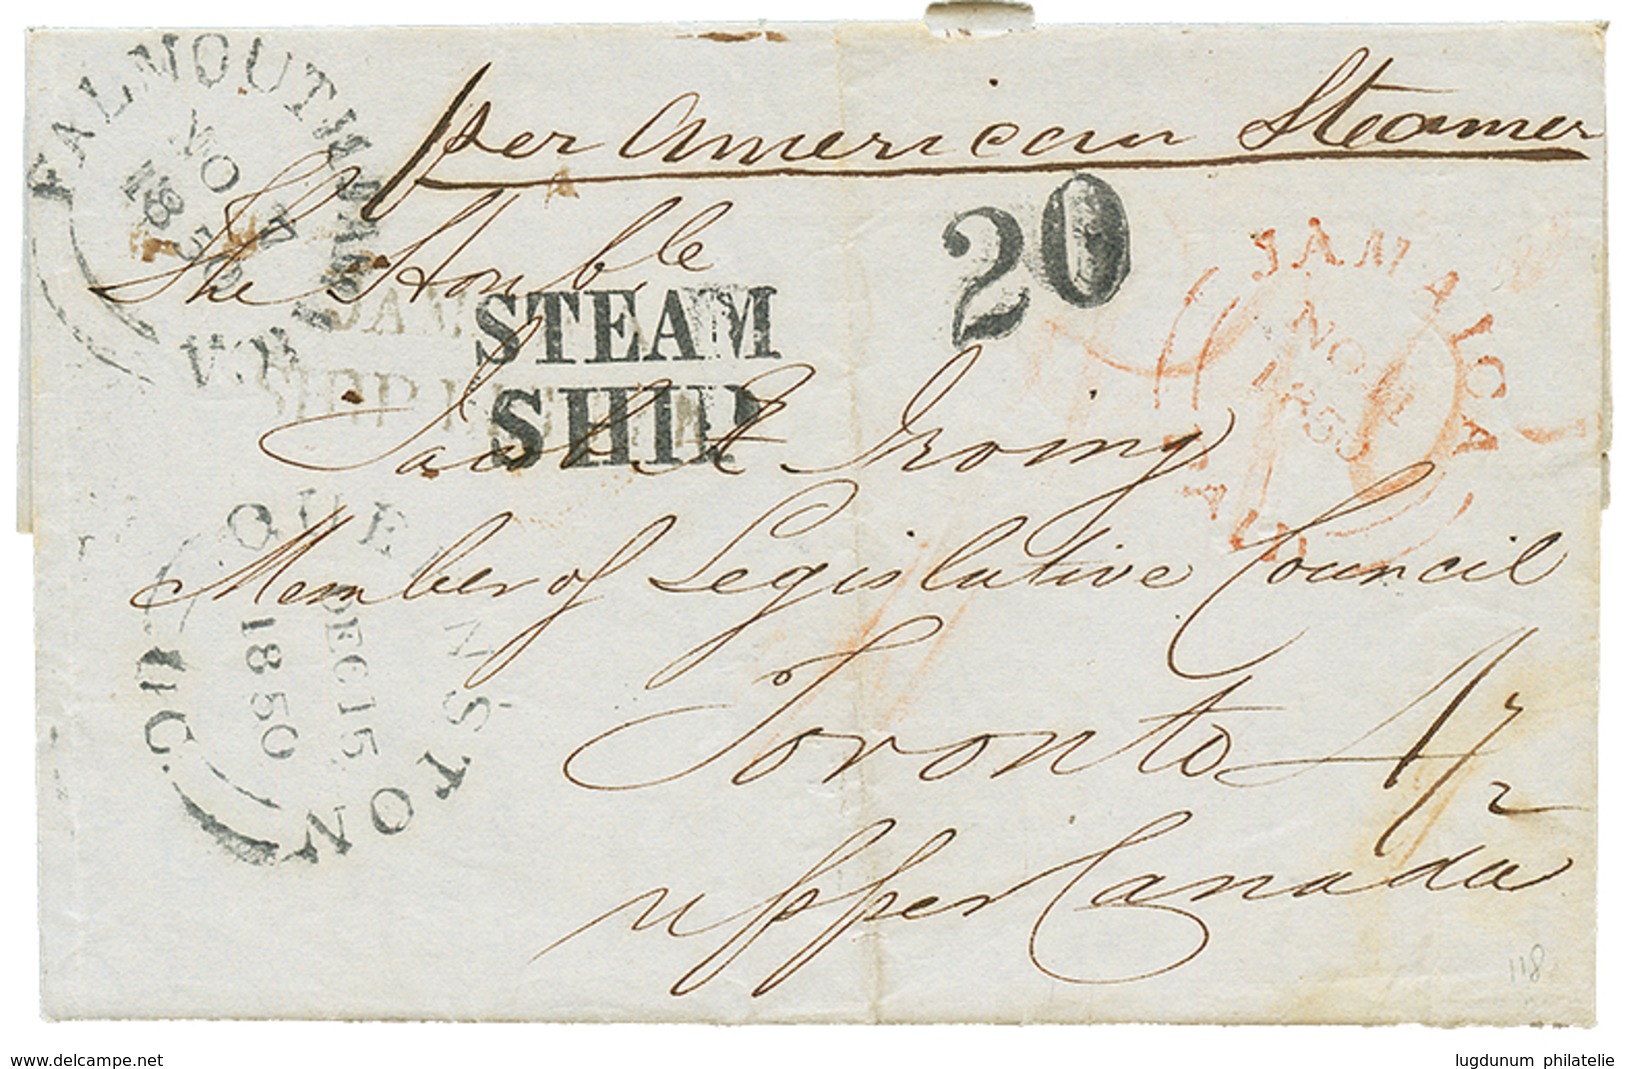 per American Steamer
FALMOUTH JAMAICA
NO
1850
20
JAMAICA
NO
1850
PAID
The Honble
STEAM
SHIP
Jacob Æ Irving
Member of Legislative Council
QUEENSTON
DEC 15
1850
U.C.
Toronto
1/2
upper Canada
118
delcampe.net
lugdunum philatelie